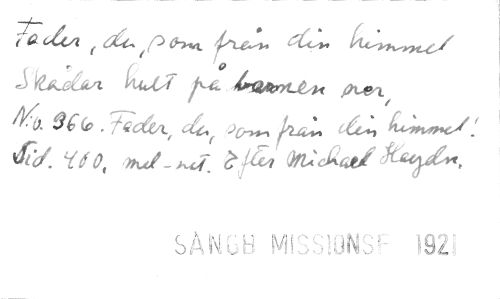 Fader, du, som från din himmel
Skådar hult på barnen ner,
N:o. 366. Fader, du, som från din himmel!
Sid. 400. mel-not. Efter Michael Haydn.
SÅNGB MISSIONSF 1921